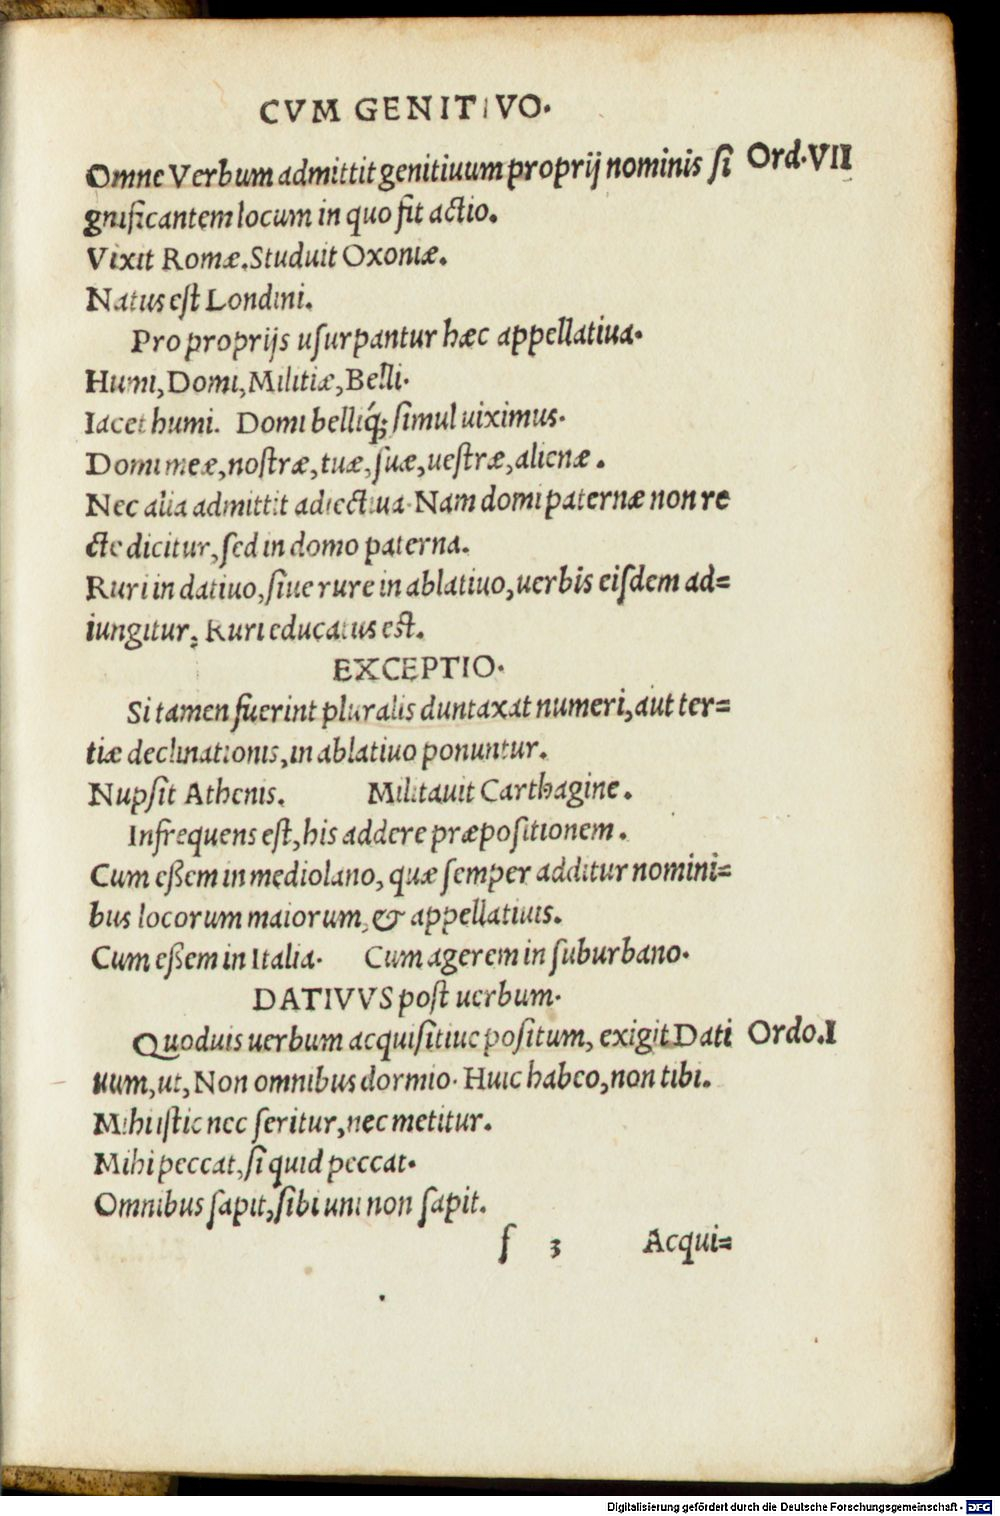 CVM GENITIVO.
Omne Verbum admittit genitiuum proprij nominis ſi Ord.VII
gnificantem locum in quo fit actio.
Vixit Romæ. Studuit Oxoniæ.
Natus eſt Londini.
Pro proprijs uſurpantur hæc appellatiua.
Humi, Domi, Militiæ, Belli.
Iacet humi. Domi belliq́; ſimul uiximus.
Domi meæ, noſtræ, tuæ, ſuæ, ueſtræ, alienæ.
Nec alia admittit adiectiua. Nam domi paternæ non re
cte dicitur, ſed in domo paterna.
Ruri in datiuo, ſiue rure in ablatiuo, uerbis eiſdem ad=
iungitur. Ruri educatus eſt.
EXCEPTIO.
Si tamen fuerint pluralis duntaxat numeri, aut ter=
tiæ declinationis, in ablatiuo ponuntur.
Nupſit Athenis. Militauit Carthagine.
Infrequens eſt, his addere præpoſitionem.
Cum eßem in mediolano, quæ ſemper additur nomini=
bus locorum maiorum, & appellatiuis.
Cum eßem in Italia. Cum agerem in ſuburbano.
DATIVVS poſt uerbum.
Quoduis uerbum acquiſitiue poſitum, exigit Dati Ordo.I
uum, ut, Non omnibus dormio. Huic habeo, non tibi.
Mihi iſtic nec ſeritur, nec metitur.
Mihi peccat, ſi quid peccat.
Omnibus ſapit, ſibi uni non ſapit.
ſ 3 Acqui=
Digitalisierung gefördert durch die Deutsche Forschungsgemeinschaft - DFG